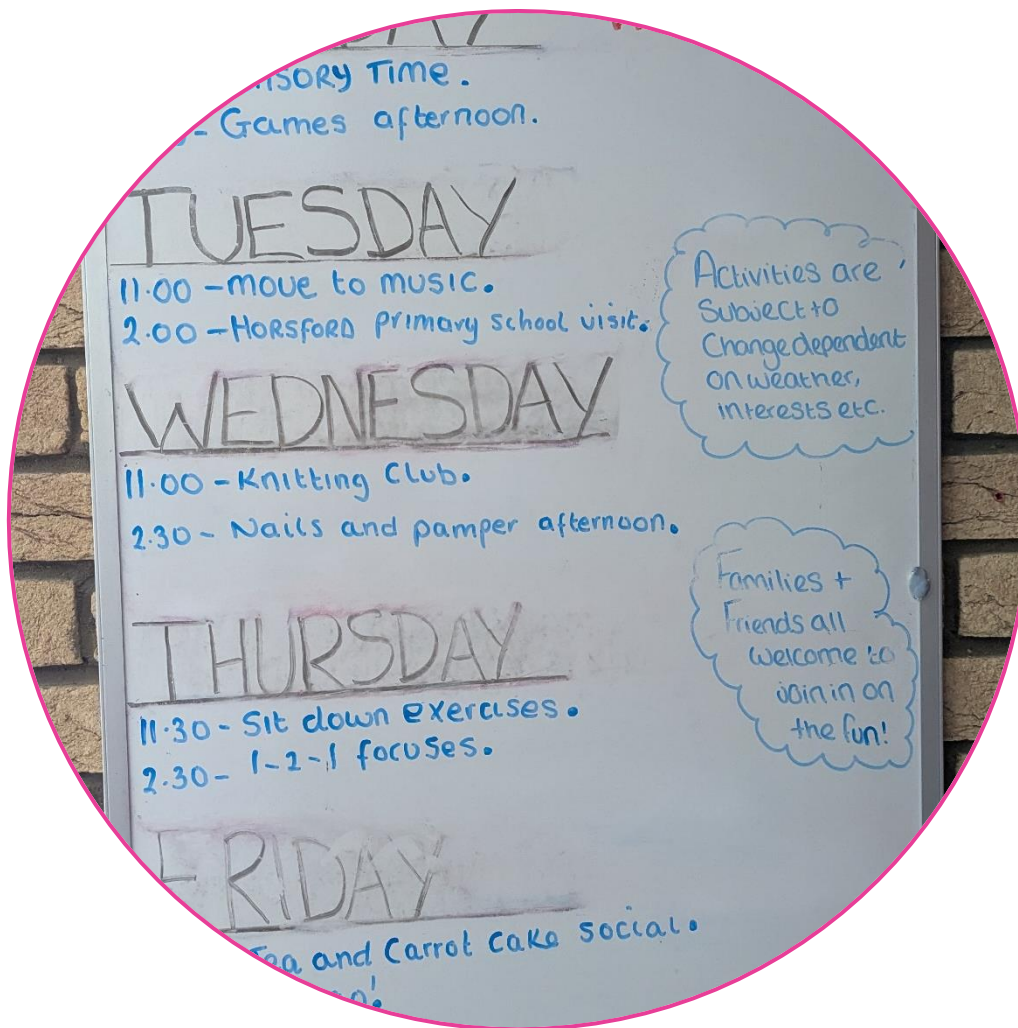 Time.
Games afternoon.
TUESDAY
11.00 - move to music.
2.00 - HORSFORD primary school visit.
WEDNESDAY
11.00 - Knitting Club.
2.30 - Nails and pamper afternoon.
THURSDAY
11.30 - Sit down exercises.
2.30 - 1-2-1 focuses.
FRIDAY
Tea and Carrot cake social.
Activities are
Subject to
Change dependent
on weather,
interests etc.
Families +
Friends all
welcome to
join in on
the fun!